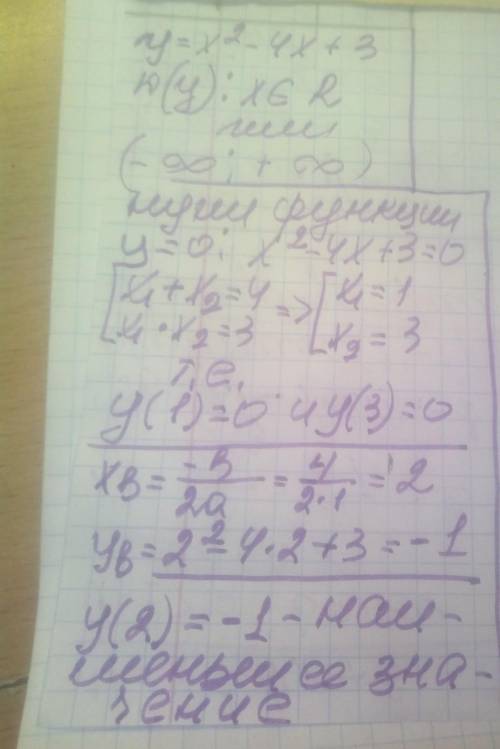 y = x² - 4x + 3
D(y): x ∈ R
или
(-∞; +∞)
нули функции
y = 0: x² - 4x + 3 = 0
[x₁ + x₂ = 4 => [x₁ = 1
x₁ · x₂ = 3 x₂ = 3
т.е.
y(1) = 0 и y(3) = 0
xв = -в/2a = 4/2·1 = 2
yв = 2² - 4·2 + 3 = -1
y(2) = -1 - наи-
меньшее зна-
чение